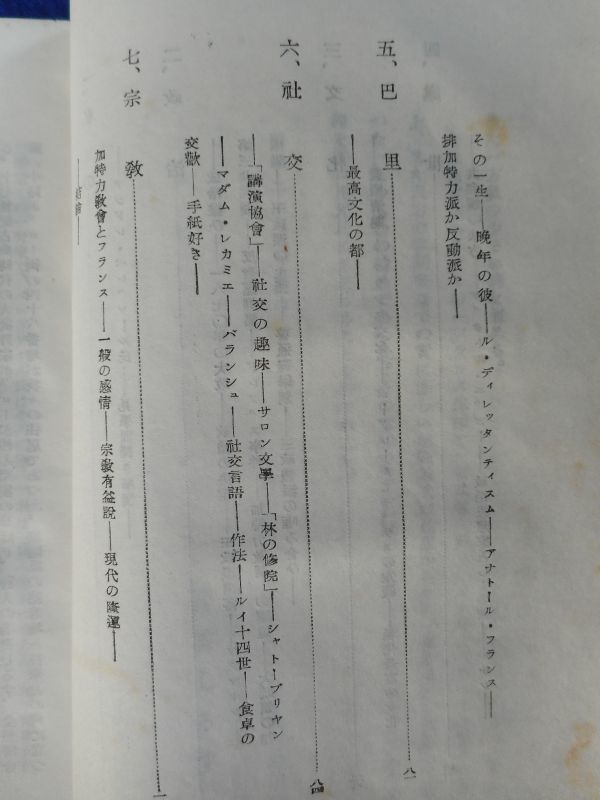 その一生――晩年の彼――ル・ディレッタンティスム――アナトール・フランス――
排加特力派か反動派か――
五、巴里……八一
――最高文化の都――
六、社交……八四
――「講演協會」――社交の趣味――サロン文學――「林の修院」――シャトーブリヤン
――マダム・レカミエ――バランシュ――社交言語――作法――ルイ十四世――食卓の
交歡――手紙好き――
七、宗教……一
加特力教會とフランス――一般の感情――宗教有益說――現代の隆運――